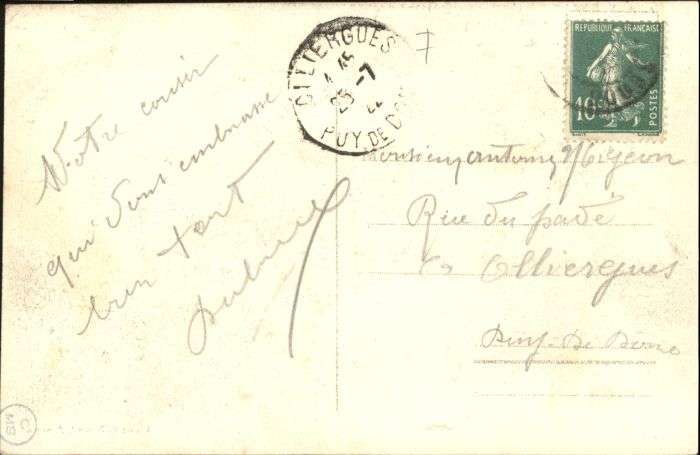 Votre cousin
qui vous embrasse
bien fort
OLLIERGUES
4 45
25-7
PUY DE DOME
F
REPUBLIQUE FRANÇAISE
10c
POSTES
Monsieur Antony Migeon
Rue du pavé
Olliergues
Puy-De-Dome
C
MB